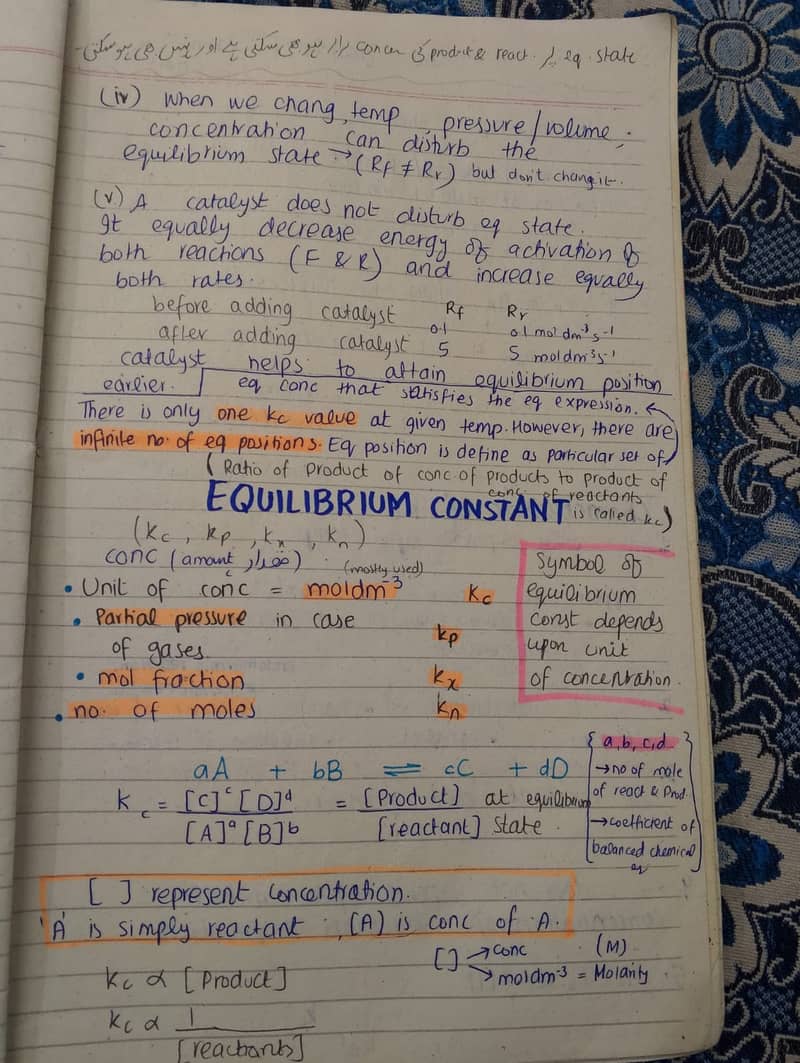 کی product & react. پر eq. state
(iv) When we chang, temp, pressure/volume,
concentration can disturb the
equilibrium state → (Rf ≠ Rr) but don't change it.
(v) A catalyst does not disturb eq state.
It equally decrease energy of activation of
both reactions (F & R) and increase equally
both rates.
Rf Rr
before adding catalyst 0.1 0.1 mol dm⁻³ s⁻¹
after adding catalyst 5 5 mol dm⁻³ s⁻¹
catalyst helps to attain equilibrium position
earlier. eq conc that satisfies the eq expression. ←
There is only one kc value at given temp. However, there are
infinite no. of eq positions. Eq position is define as particular set of
(Ratio of product of conc. of products to product of
conc of reactants
is called kc)
EQUILIBRIUM CONSTANT
(kc, kp, kx, kn)
conc (amount مقدار) (mostly used)
• Unit of conc = moldm⁻³ kc
• Partial pressure in case
of gases. kp
• mol fraction kx
• no. of moles kn
Symbol of
equilibrium
const depends
upon unit
of concentration.
aA + bB ⇌ cC + dD
kc = [C]ᶜ [D]ᵈ / [A]ᵃ [B]ᵇ = [Product] / [reactant] at equilibrium state.
{a, b, c, d}
→ no of mole
of react & Prod.
→ coefficient of
balanced chemical
eq
[ ] represent concentration.
'A' is simply reactant, [A] is conc of A.
[] → conc (M)
→ moldm⁻³ = Molarity
kc ∝ [Product]
kc ∝ 1 / [reactants]